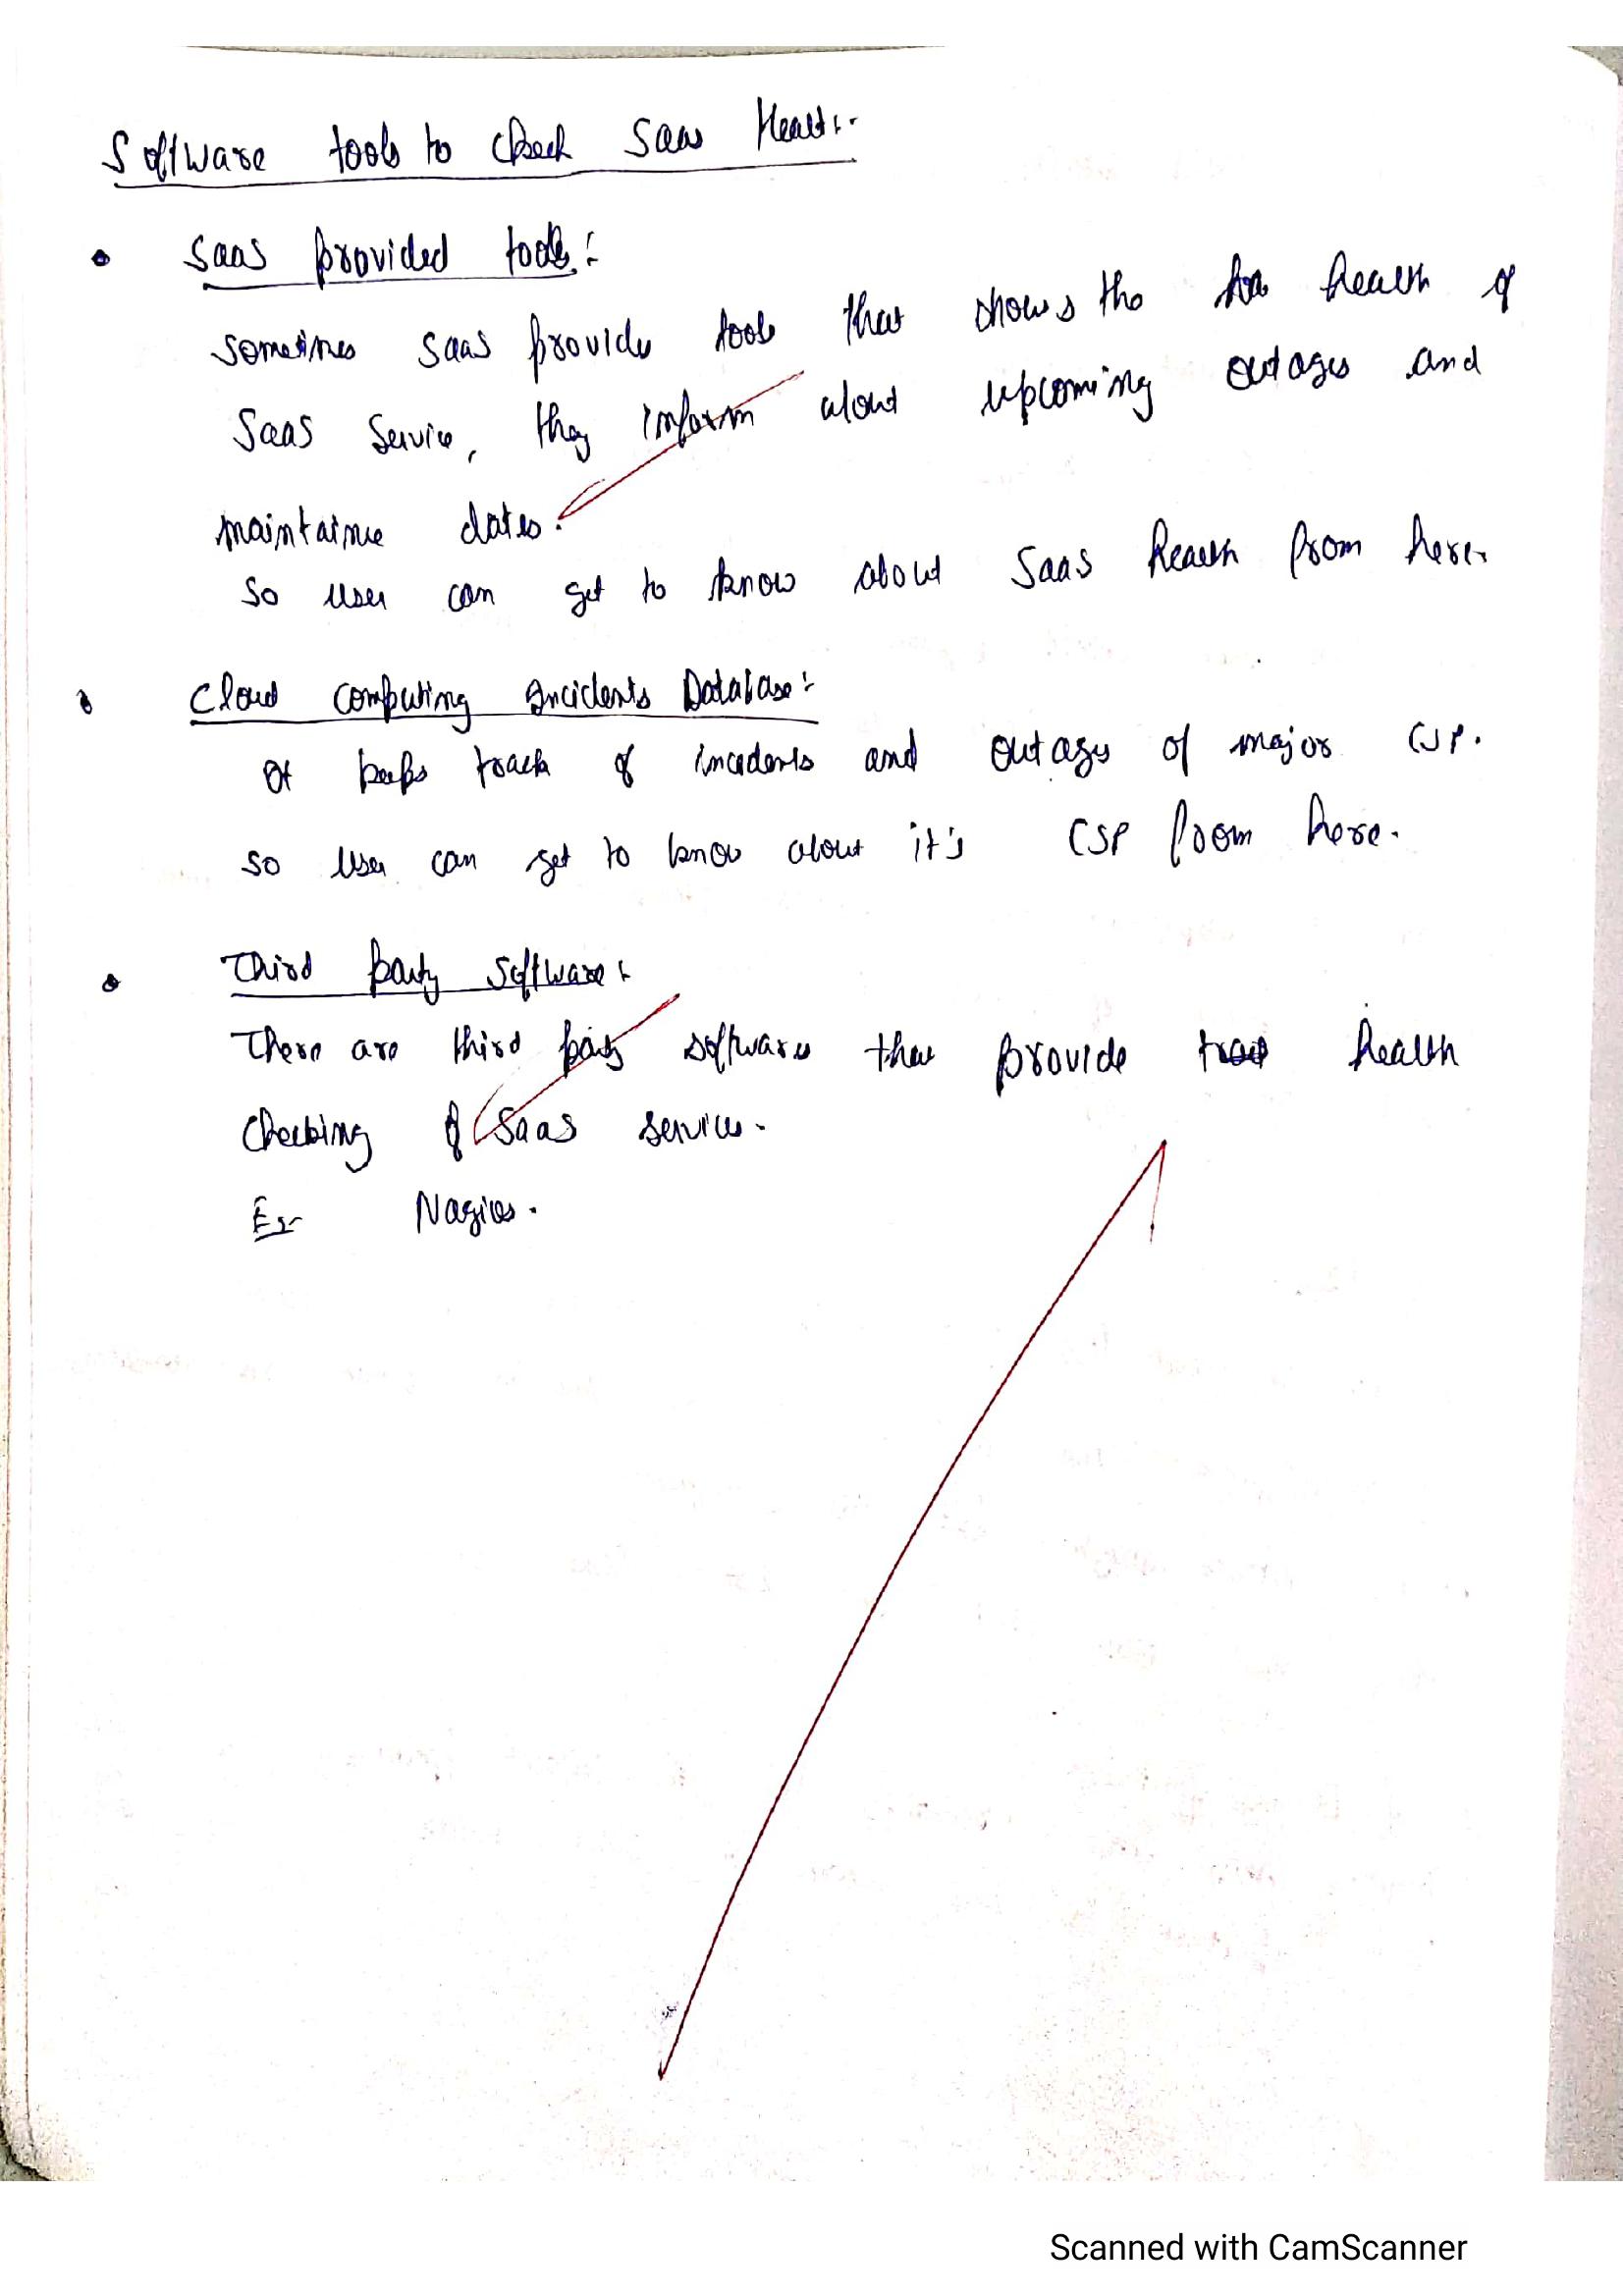 Software tools to check Saas Health:-
• Saas provided tools:-
sometimes saas provide tools that shows the health of
Saas Service, they inform about upcoming outages and
maintaince dates.
so user can get to know about Saas health from here.
• Cloud computing Incidents Database:-
It keeps track of incidents and outages of major CSP.
so user can get to know about it's CSP from here.
• Third party Software:
There are third party softwares that provide health
checking of Saas services.
Eg- Nagios.
Scanned with CamScanner